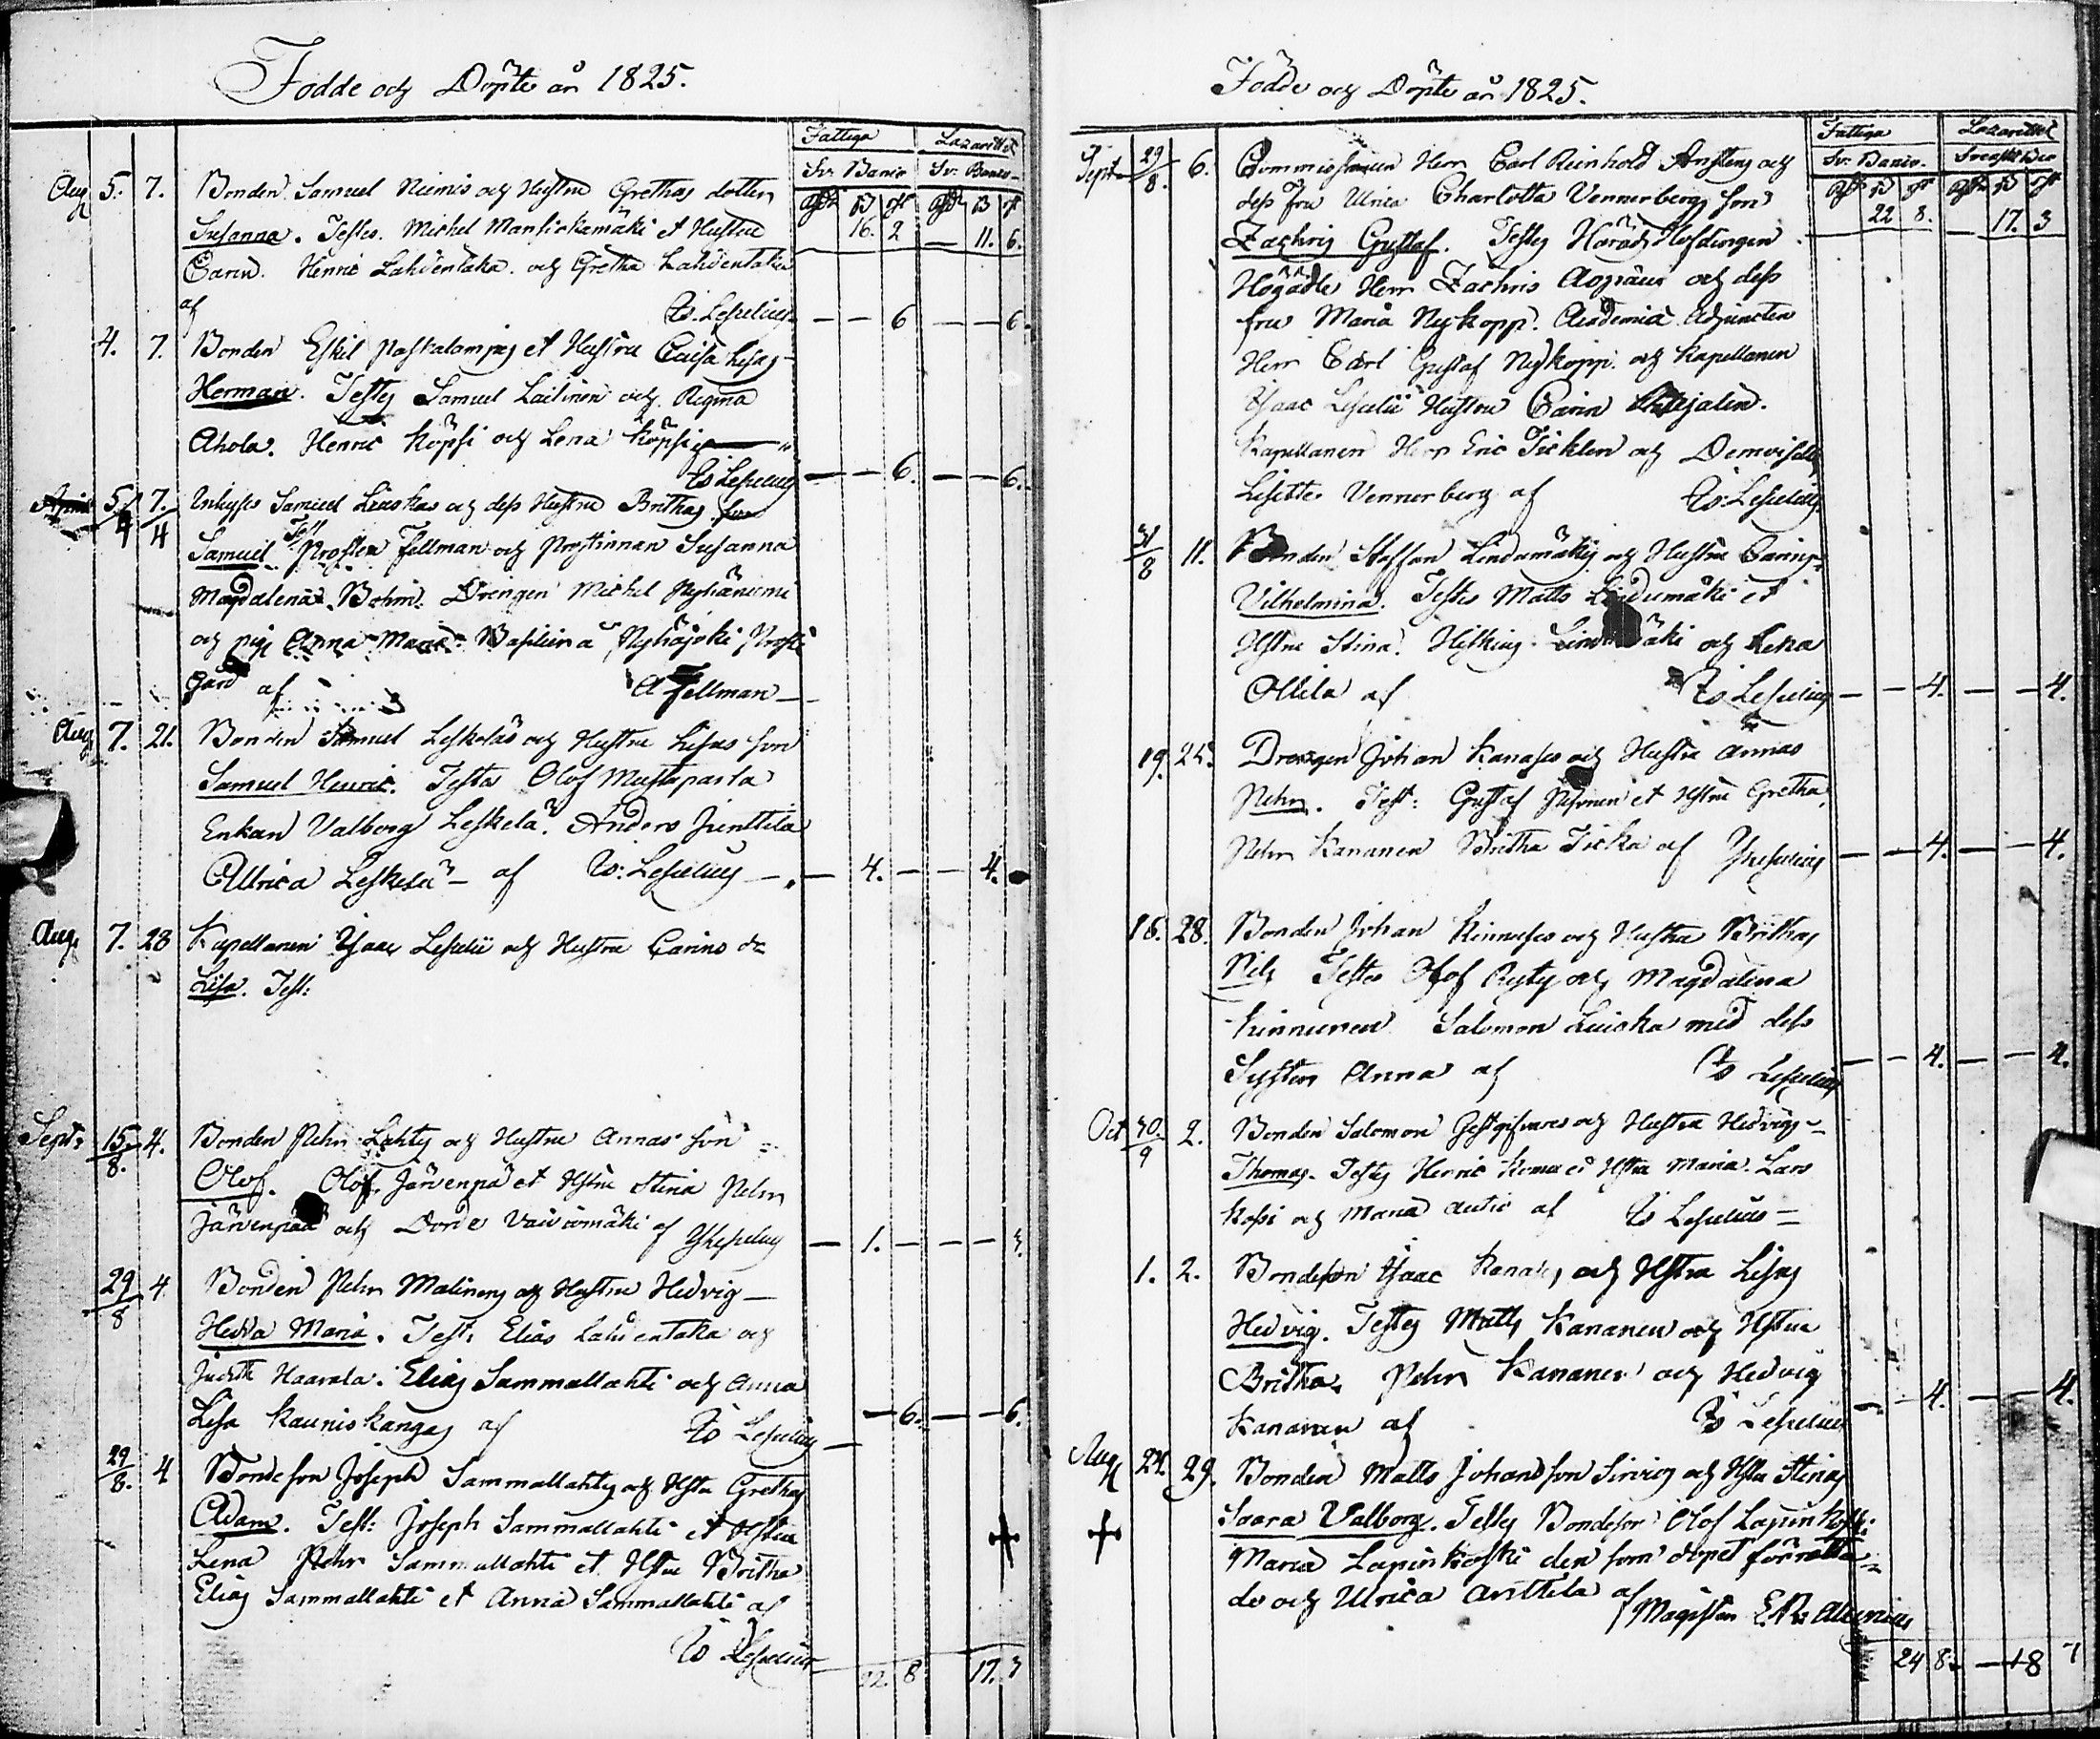 Födde och Döpte år 1825.
Fattiga Lazarettet
Sv. Banco Sv. Banco
16. 2 11. 6.
Aug 5. 7. Bonden Samuel Niemis och Hustru Grethas dotter
Susanna. Testes. Michel Mansickamäki et Hustru
Carin. Henric Lahdentaka och Gretha Lahdentaka
af Is. Leselius — — 6 — — 6.
4. 7. Bonden Eskil et Hustru Caisa Lisas
Herman. Testes Samuel Laitinen och Regina
Ahola. Henric Köpsi och Lena Köpsi
Is Leselius — — 6. — — 6.
April 5/4 7/4 Samuel och dess Hustru Brithas son
Samuel Test Prosten Fellman och Prostinnan Susanna
Magdalena Bohm. Drengen Michel
och pig Anna Maria Pyhäjoki Prosti
gård af A Fellman —
Aug 7. 21. Bonden Samuel Leskeläs och Hustru Lisas son
Samuel Henric. Testes Olof Mustaparta
Enkan Valborg Leskelä. Anders Junttila
Ullrica Leskelä — af Is: Leselius — — 4. — — 4.
Aug. 7. 28 Kapellanen Isaac Leselii och Hustru Carins dr
Lisa. Test:
Sept: 15/8. 4. Bonden Pehr Lahtis och Hustru Annas son
Olof. Olof Järvenpä et Hstru Stina Pehr
Järvenpää och Vaiviomäki af Is Leselius — 1. — — — 3.
29/8 4. Bonden Pehr Malinens och Hustru Hedvig —
Hedda Maria. Test. Elias Lahdentaka och
Judith Haarala. Elias Sammallahti och Anna
Lisa Kauniskangas af Is Leselius — — 6. — — 6.
29/8. 4 Bondeson Joseph Sammallahtis och Hstru Grethas
Adam. Test: Joseph Sammallahti et Hstru
Lena Pehr Sammallahti et Hstru Britha
Elias Sammallahti et Anna Sammallahti af
Is Leselius
22. 8 17. 3
Födde och Döpte år 1825.
Fattiga Lazarettet
Sv: Banco. Svenskt Bco
22 8. 17. 3
Sept. 29/8. 6. Commissarien Herr Carl Reinhold och
dess Fru Ulrica Charlotta Vennerbergs son
Zachris Gustaf. Testes Härads Höfdingen
Högädle Herr Zachris och dess
fru Maria Nykopp. Academiæ Adjuncten
Herr Carl Gustaf Nykopp och Kapellanen
Isaac Leselii Hustru Carin
Kapellanen Herr Eric Ticklen och Demoiselle
Lisette Vennerberg af Is: Leselius
31/8 11. Bonden Staffan Lindumäkis och Hustru Carins
Vilhelmina. Testes Matts Lindumäki et
Hstru Stina. och Lena
Ollila af Is Leselius — — 4. — — 4.
19. 25. Drengen Johan Kanases och Hustru Annas
Pehr. Test: Gustaf et Hstru Gretha,
Pehr Kananen Britha af Is Leselius — — 4. — — 4.
18. 28. Bonden Johan Kinnuses och Hustru Brithas
Nils Testes Olof och Magdalena
Kinnunen Salomon Luiska med dess
Syster Anna af Is Leselius — — 4. — — 4.
Oct 30/9 2. Bonden Salomon och Hustru Hedvigs
Thomas. Testes Henric et Hstru Maria. Lars
och Maria Autio af Is Leselius —
1. 2. Bondeson Isaac Kanases och Hstru Lisas
Hedvig. Testes Matts Kananen och Hstru
Britha. Pehr Kananen och Hedvig
Kananen af Is Leselius — 4. — — 4.
Aug 24. 29. Bonden Matts Johansson Sirviös och Hstru Stinas
Saara Valborg. Testes Bondeson Olof Lapinkoski
Maria Lapinkoski den som dopet förrätta-
de och Ulrica Anttila af Magister E N: Alcenius
24 8. — 18 7